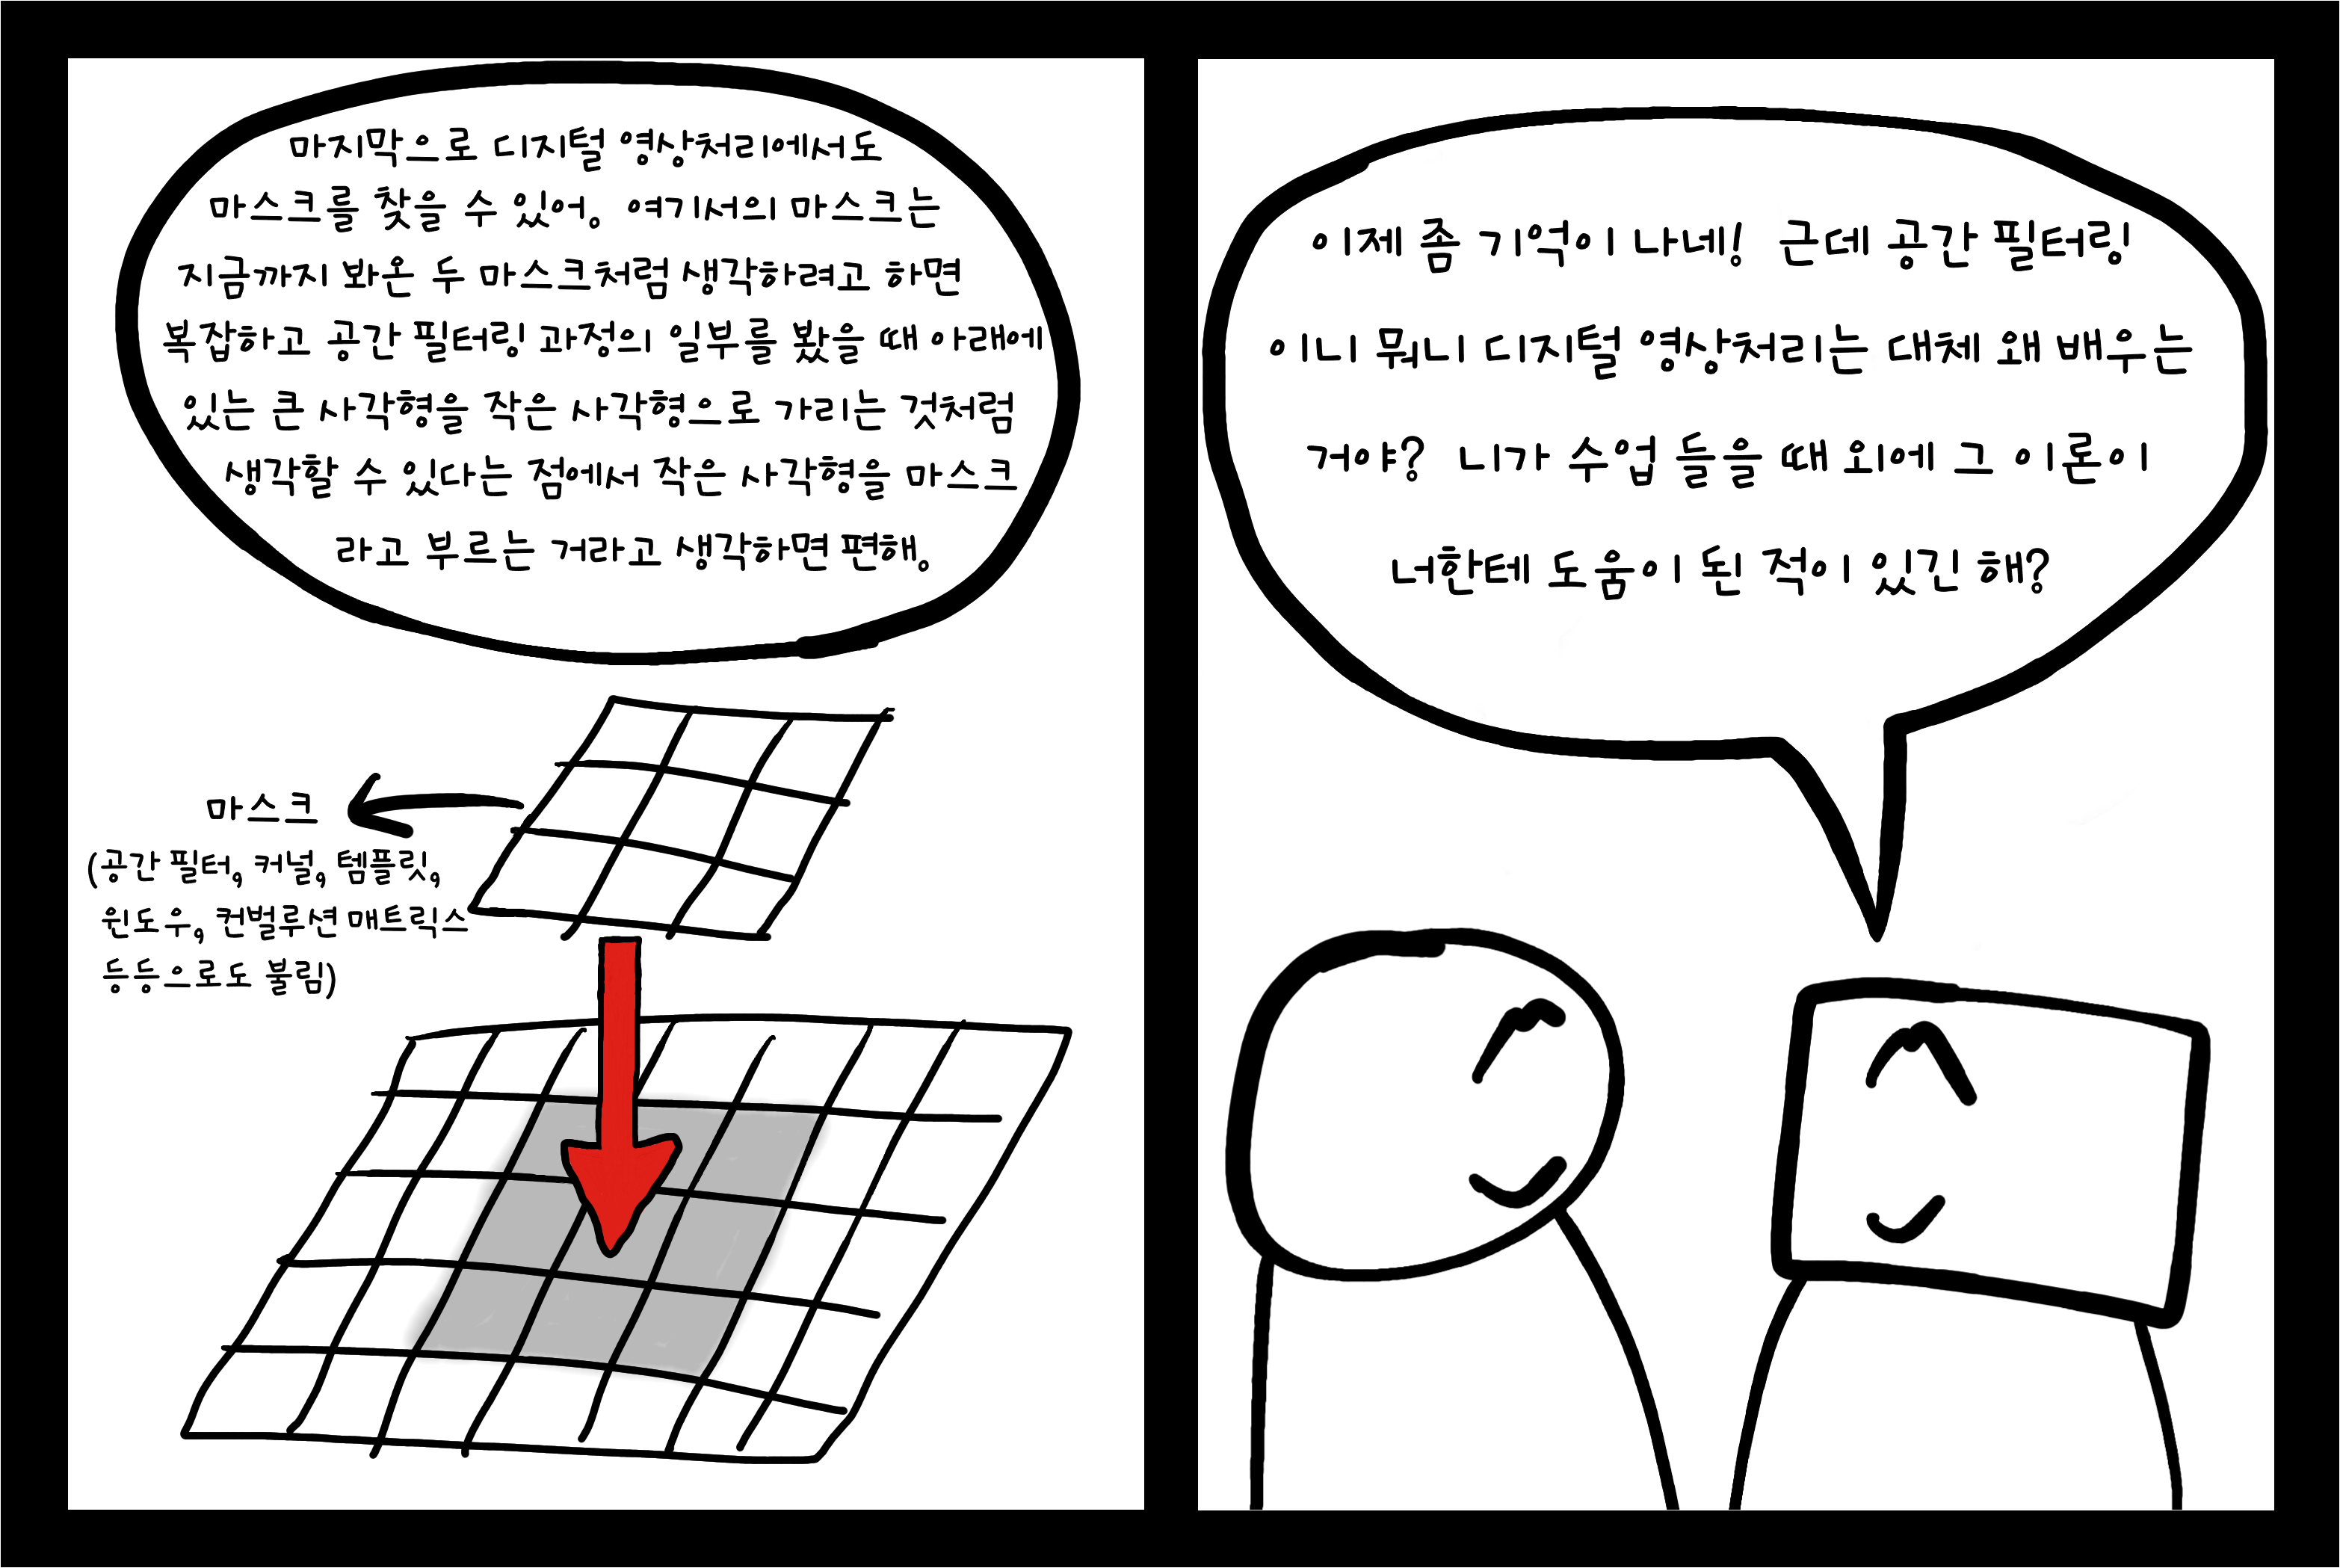 마지막으로 디지털 영상처리에서도
마스크를 찾을 수 있어. 여기서의 마스크는
지금까지 봐온 두 마스크처럼 생각하려고 하면
복잡하고 공간 필터링 과정의 일부를 봤을 때 아래에
있는 큰 사각형을 작은 사각형으로 가리는 것처럼
생각할 수 있다는 점에서 작은 사각형을 마스크
라고 부르는 거라고 생각하면 편해.
마스크
(공간 필터, 커널, 템플릿,
윈도우, 컨벌루션 매트릭스
등등으로도 불림)
이제 좀 기억이 나네! 근데 공간 필터링
이니 뭐니 디지털 영상처리는 대체 왜 배우는
거야? 니가 수업 들을 때 외에 그 이론이
너한테 도움이 된 적이 있긴 해?